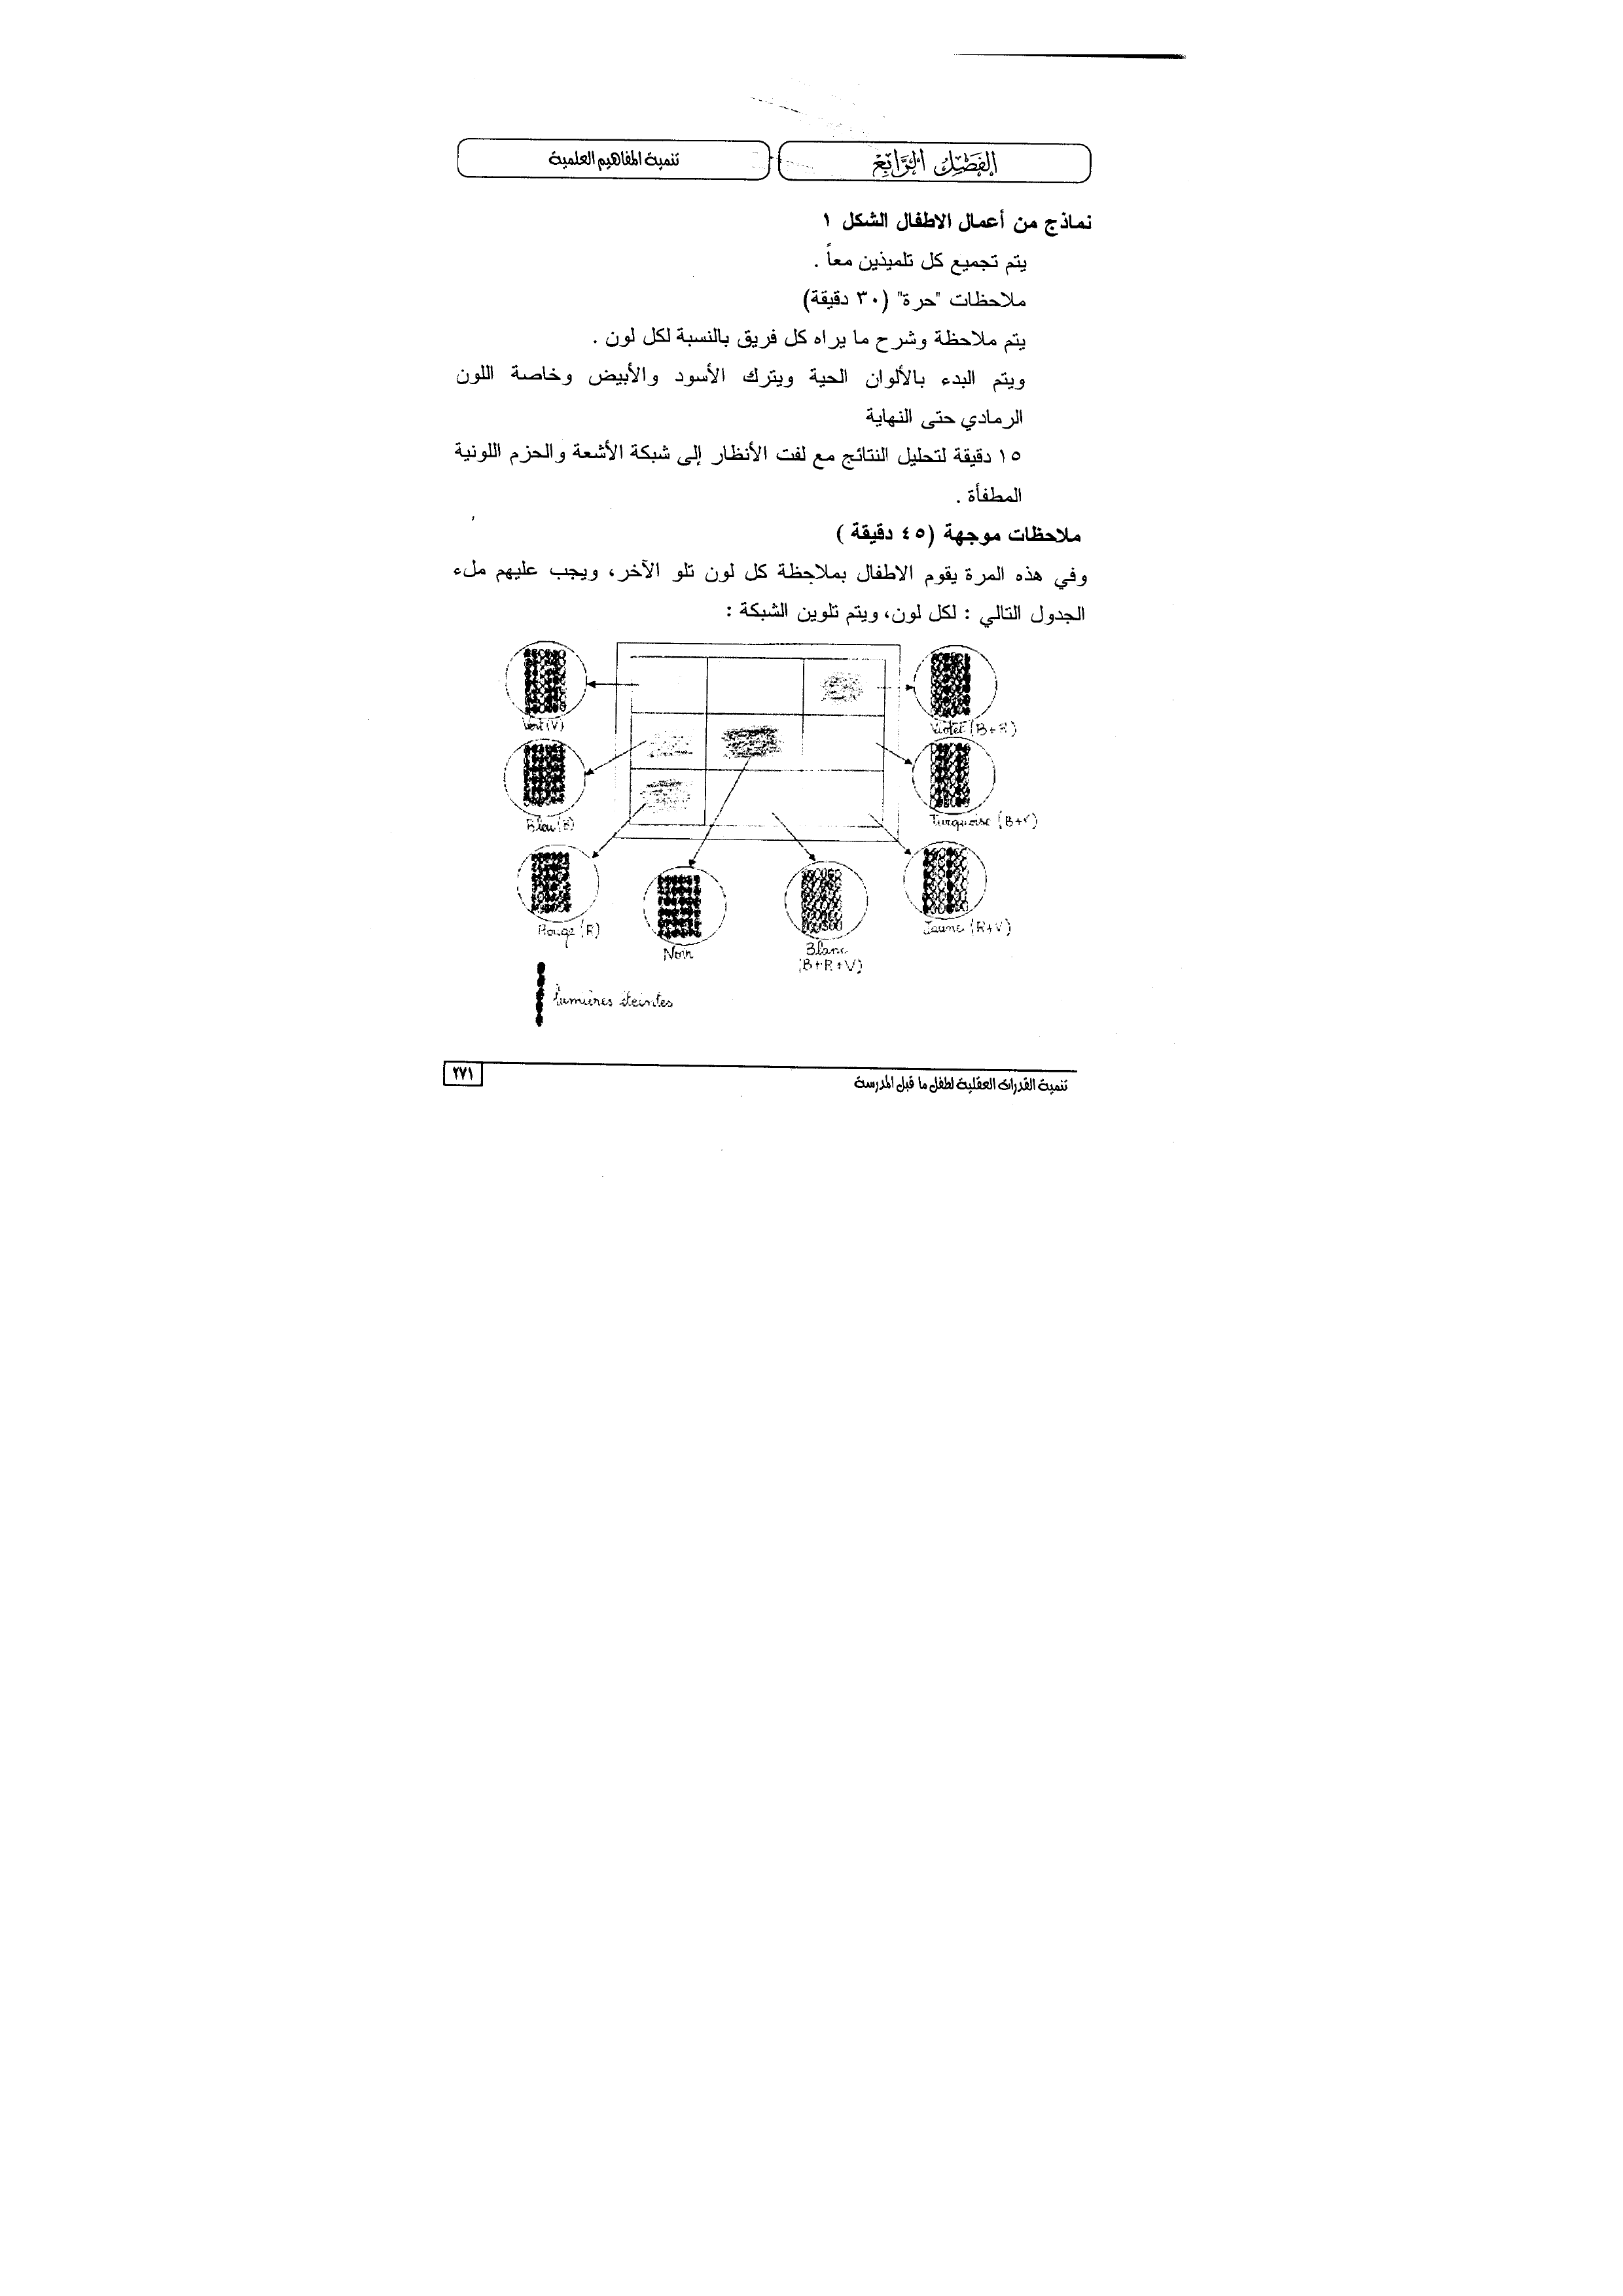 الفصل الرابع
تنمية المفاهيم العلمية
نماذج من أعمال الاطفال الشكل ١
يتم تجميع كل تلميذين معاً .
ملاحظات "حرة" (٣٠ دقيقة)
يتم ملاحظة وشرح ما يراه كل فريق بالنسبة لكل لون .
ويتم البدء بالألوان الحية ويترك الأسود والأبيض وخاصة اللون
الرمادي حتى النهاية
١٥ دقيقة لتحليل النتائج مع لفت الأنظار إلى شبكة الأشعة والحزم اللونية
المطفأة .
ملاحظات موجهة (٤٥ دقيقة )
وفي هذه المرة يقوم الاطفال بملاحظة كل لون تلو الآخر، ويجب عليهم ملء
الجدول التالي : لكل لون، ويتم تلوين الشبكة :
Vert (V)
Violet (B+R)
Bleu (B)
Turquoise (B+V)
Rouge (R)
Noir
Blanc
(B+R+V)
Jaune (R+V)
lumières éteintes
تنمية القدرات العقلية لطفل ما قبل المدرسة
٢٧١